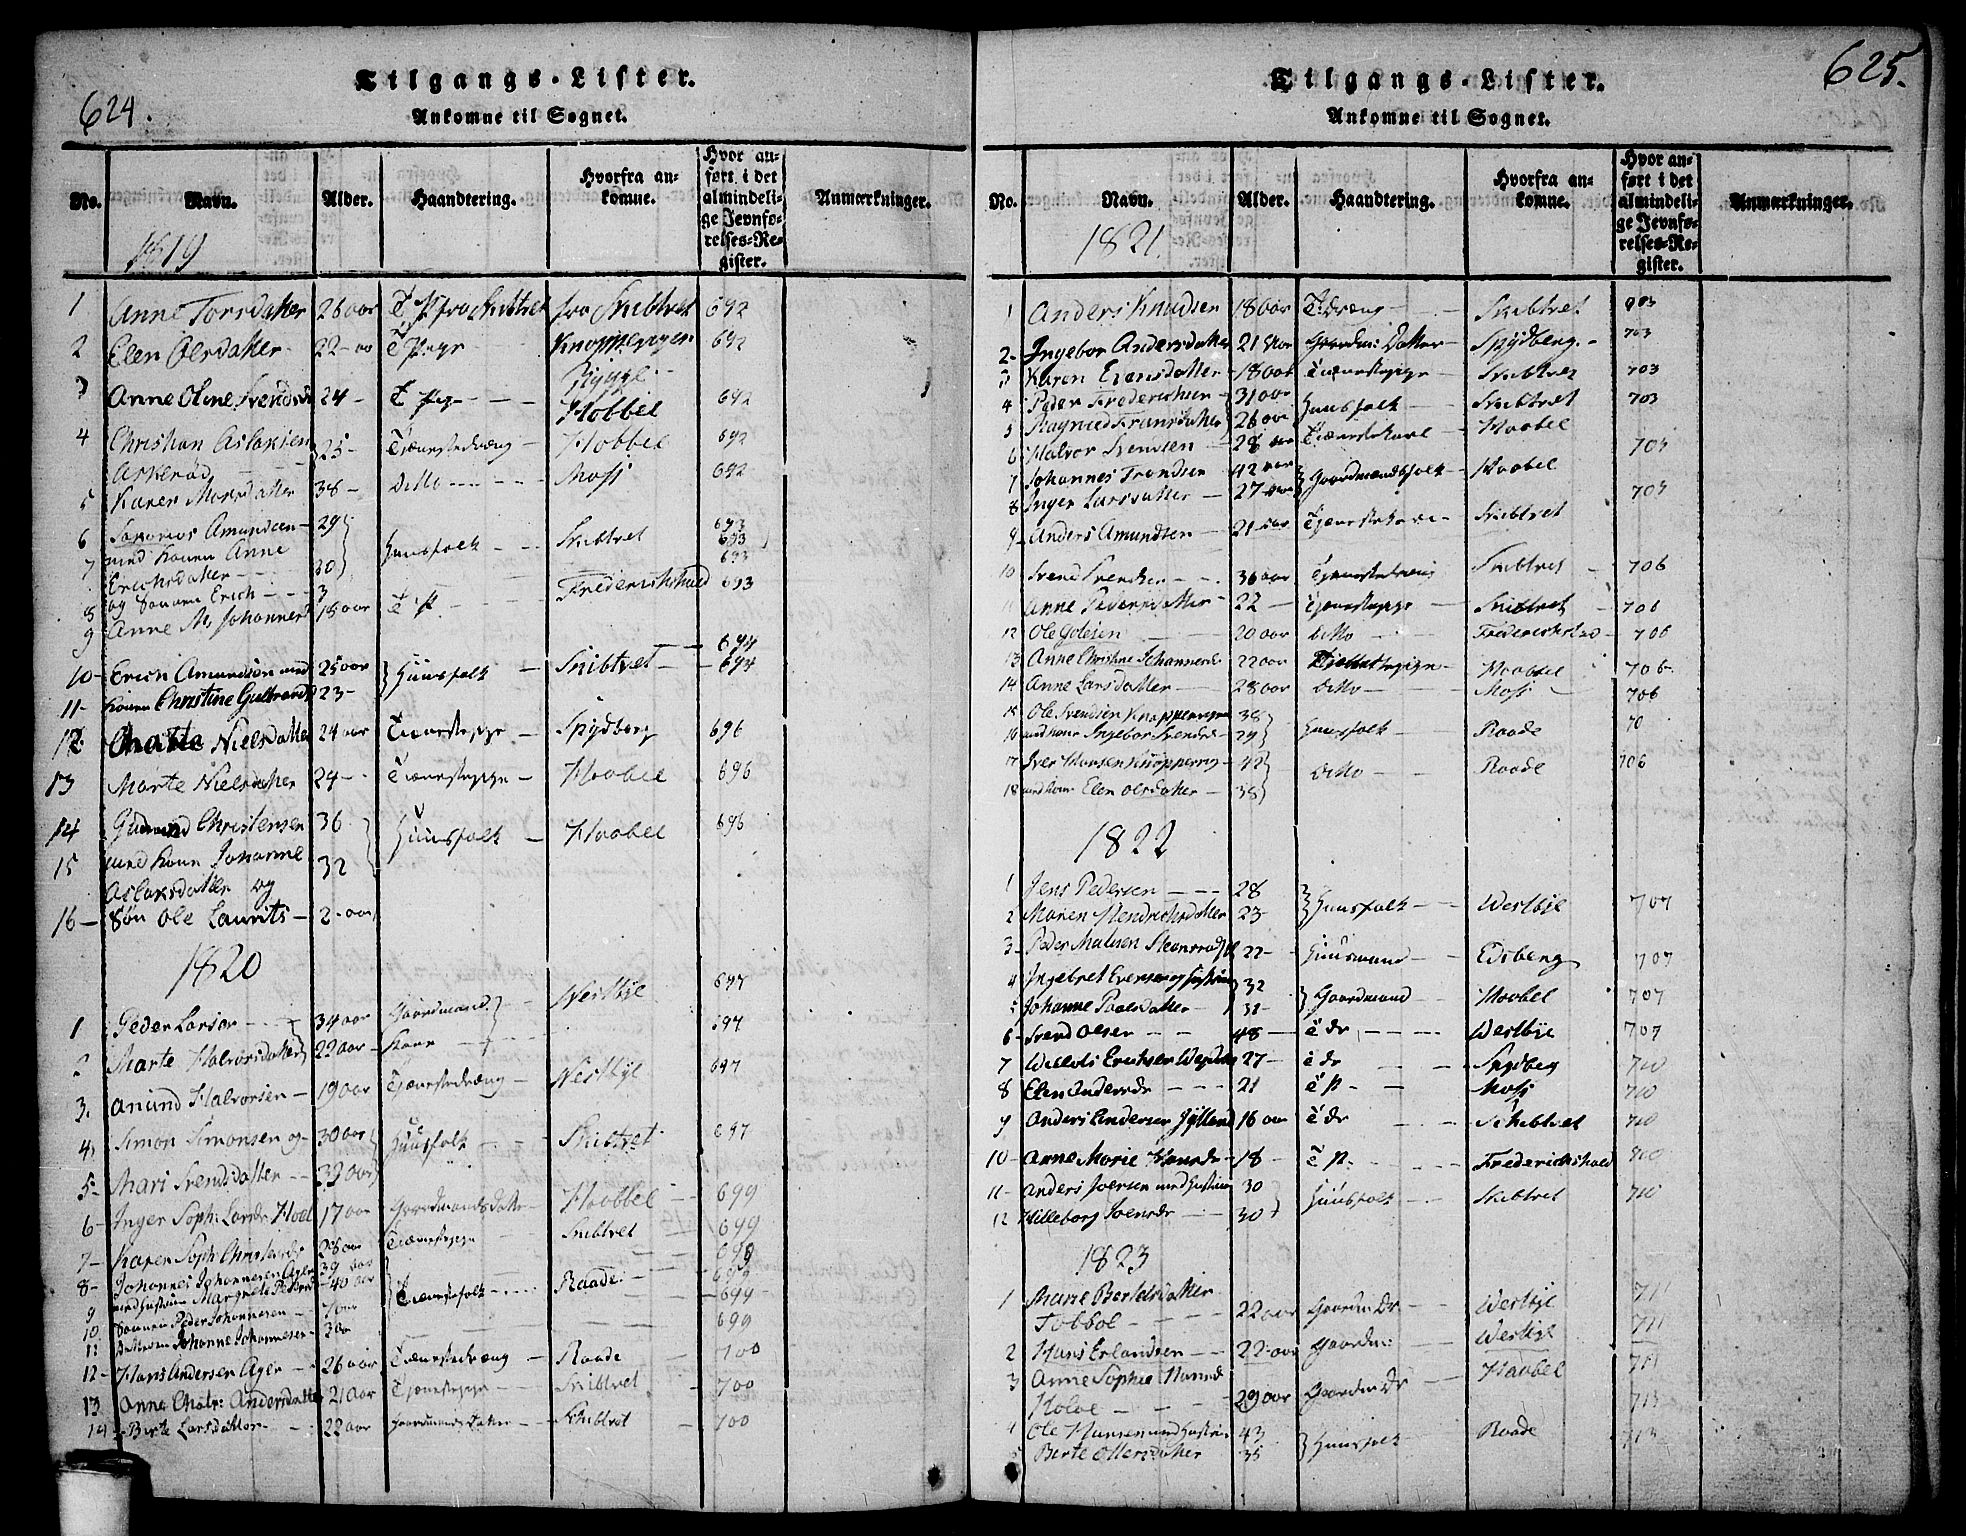 624.
Tilgangs-Lister.
Ankomne til Sognet.
No. Navn. Alder. Haandtering. Hvorfra ankomne. Hvor anført i det almindelige Jevnførelses-Register. Anmærkninger.
1819
1 Anne Torsdatter 26 aar T. P. fra Skibtvet fra Skibtvet 692
2 Elen Olsdatter 22 - aa T. Pige - Knappe Rygge 692
3 Anne Oline Svends 24 - T. Pige - - - Hobbel 692
4 Christian Aslaksen 25 - Tjænestedræng - Hobbel 692
Askerød
5 Karen Marisdatter 38 - Ditto - - - Moss 692
6 Amundsen - 29 Huusfolk - - Skibtvet 693
7 med Konen Anne 30 693
Erichsdatter - -
8 og Sønnen Erich - - - 3 693
9 Anne M. Johannesd 18 aar T. P. - - Frederikshald 693
10 - Erich Amundsen med 25 aar Huusfolk - Skibtvet - 694
11 - Konen Christine Gulbrands 23 - 694
12. Nielsdatter 24 aar Tienestepige - Spydberg 696
13 Marte Nielsdatter 24 - Tienestepige - Hoabel 696
14 Gudmund Christensen 36 Huusfolk - Hoabel 696
15 med Konen Johanne 32
Aslaksdatter og
16 - Søn Ole Laurits - 2 - aar
1820
1 Peder Larsen - 34 aar Gaardmand - Westbye 697
2 Marte Halvorsdatter 22 aar - Kone - 697
3. Amund Halvorsen - 19 aar Tjænestedræng - Westbye 697
4, Simon Simonsen og - 30 aar Huusfolk - - Skibtvet 697
5 - Mari Svendsdatter - - 33 aar
6 - Inger Soph: Larsdr Hoel 17 aar Gaardmandsdatter Hoabbel - 699
7 - Karen Soph: 28 aar Tienestepige Skibtvet 699
8 - Johannes Johannesen Ager 39 aar Tienestefolk - - - Raade 699
9 med Hustrue Margrete 40 aar 699
10. Sønnen Peder Johannesen - 7 aar 699
11 Johanne Johannesen - 3 aar 699
12 - Hans Andersen Ager - 26 aar Tienestedræng - Raade 700
13 Anne Chatr: Andersdatter 21 aar Tjenestepige - Skibtvet - 700
14 - Berte Larsdatter - - 22 aar Gaardmands Datter - Skibtvet - 700
625.
Tilgangs-Lister.
Ankomne til Sognet.
No. Navn. Alder. Haandtering. Hvorfra ankomne. Hvor anført i det almindelige Jevnførelses-Register. Anmærkninger.
1821.
1 Anders Knudsen 18 aar T. dræng - Skibtvet 703
2 - Ingebor Andersdatter 21 aar Gaardm: Datter - Spydberg - 703
3 Karen Evensdatter - 18 aar Tienestepige - Skibtvet 703
4 Peder Frederichsen - 31 aar Huusfolk - - Skibtvet 703
5 Ragnild Fransdatter 26 aar
6 Halvor Svendsen - 28 aar Tienestekarl - Hoabel 705
7 Johannes Trondsen 42 aar Gaardmandsfolk - Hoabel
8 Inger Larsdatter - 27 aar 705
9 - Anders Amundsen 21 aar Tjenestekarl - Skibtvet
10 Svend Svendsen - - 36 aar Tjenestedreng Skibtvet - 706
11 Anne Pedersdatter - 22 - Tjenestepige - Skibtvet - 706
12 Ole Olesen 20 aar ditto - Frederichstad - 706
13 Anne Christine Johannesdr 22 aar Tienestepige - Hoabel 706
14 Anne Larsdatter - 28 aar ditto - Moss - 706
15 Ole Svendsen 38 Huusfolk - - Raade 70
16 med Kone Ingebor Svendsdr 29
17 Iver Hansen 42 ditto - Raade 706
18 med Kone Elen Olsdatter - 38
1822
1 Jens Pedersen - - - 28 Huusfolk - - Westbye 707
2 Maren Hendrichsdatter 23 -
3 - Peder 22 - Huusmand - Edsberg 707
4 Ingebret Eversen og Hustrue 32 Gaardmand - - Hoabel 707
5 Johanne Paalsdatter - 31 -
6 - Svend Olsen - - 48 - T dr - - - - Westbye 707
7 Erichsen 27 - T dr Spydberg 710
8 Elen Andersdr - - - 21 T P. - - Moss 710
9 Anders Andersen 16 aar T dr - - Schibtvet 710
10 - Anne Marie Hansdr - 18 - T P. - - - - Frederichshald 710
11 - Anders Iversen med Hustrue 30 Huusfolk - - Skibtvet 710
12 Hilleborg Svensdr - 30
1823
1 Marie Bertelsdatter
22 aar Gaardm Dr - - Westbye 711
2 Hans Erlandsen - - 22 - aar Gaardm: Westbye 711
3 Anne Sophie Hansd
29 aar Gaardm Dr Haabel 711
713
4 Ole Hansen med Hustrue 43 Huusfolk - Raade 713
5 Berte Ottersdatter 35